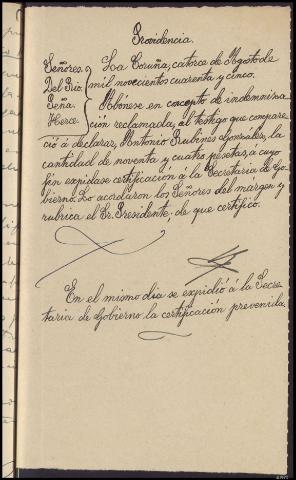 Providencia.
Señores. La Coruña, catorce de Agosto de
Del Rio. mil novecientos cuarenta y cinco.
Peña. Abónese en concepto de indemniza
Herce. ción reclamada, al testigo que compare
ció á declarar, Antonio Rubines Gonzalez, la
cantidad de noventa y cuatro pesetas, á cuyo
fin expidase certificación á la Secretaría de Go-
bierno. Lo acordaron los Señores del margen y
rubrica el Sr. Presidente, de que certifico.
En el mismo dia se expidió á la Secre-
taria de Gobierno, la certificación prevenida.